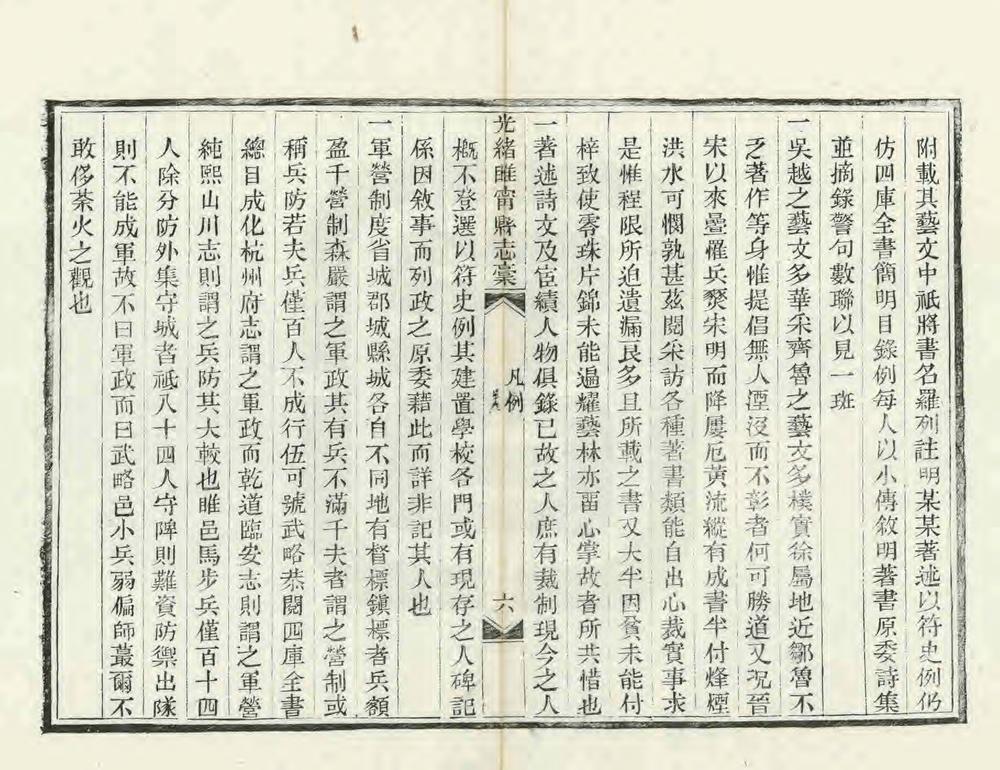 附載其藝文中祗將書名羅列註明某某著述以符史例仍
仿四庫全書簡明目錄例每人以小傳敘明著書原委詩集
並摘錄警句數聯以見一班
一吳越之藝文多華采齊魯之藝文多樸實徐屬地近鄒魯不
乏著作等身惟提倡無人湮沒而不彰者何可勝道又況晉
宋以來疊罹兵燹宋明而降屢厄黃流縱有成書半付烽煙
洪水可憫孰甚茲閱采訪各種著書類能自出心裁實事求
是惟程限所迫遺漏良多且所載之書又大半因貧未能付
梓致使零珠片錦未能遍耀藝林亦畱心掌故者所共惜也
一著述詩文及宦績人物俱錄已故之人庶有裁制現今之人
光緒睢甯縣志稾
凡例
六
概不登選以符史例其建置學校各門或有現存之人碑記
係因敘事而列政之原委藉此而詳非記其人也
一軍營制度省城郡城縣城各自不同地有督標鎮標者兵額
盈千營制森嚴謂之軍政其有兵不滿千夫者謂之營制或
稱兵防若夫兵僅百人不成行伍可號武略恭閱四庫全書
總目成化杭州府志謂之軍政而乾道臨安志則謂之軍營
純熙山川志則謂之兵防其大較也睢邑馬步兵僅百十四
人除分防外集守城者祗八十四人守陴則難資防禦出隊
則不能成軍故不曰軍政而曰武略邑小兵弱偏師蕞爾不
敢侈荼火之觀也